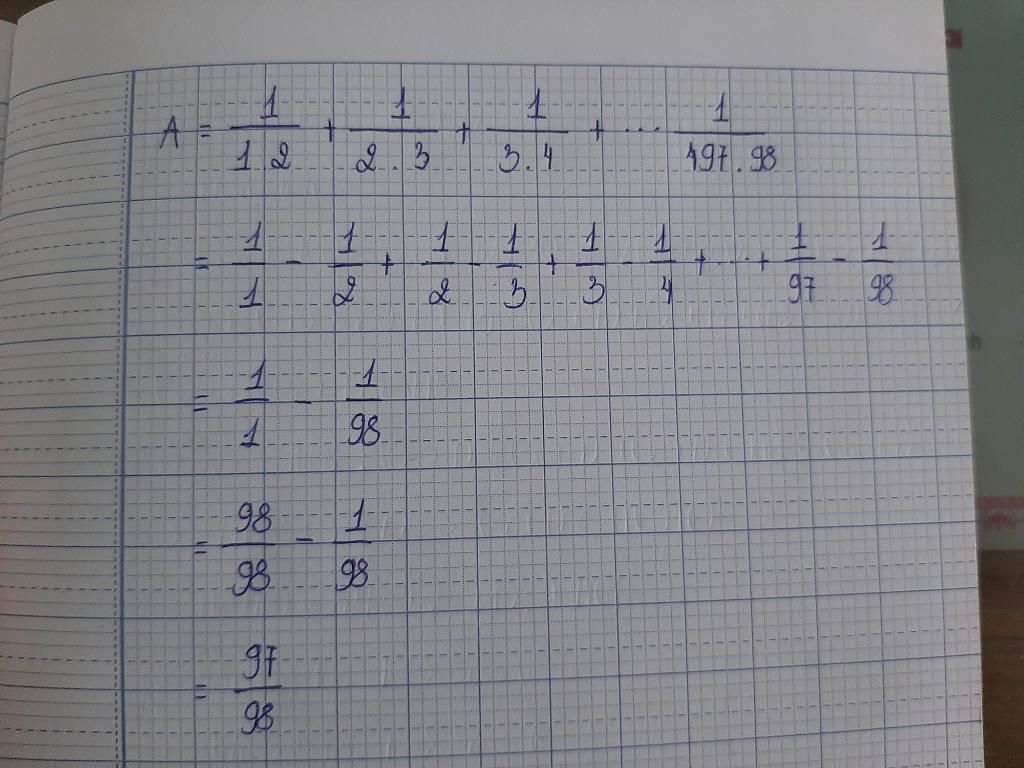 A = 1/1.2 + 1/2.3 + 1/3.4 + ... 1/497.98
= 1/1 - 1/2 + 1/2 - 1/3 + 1/3 - 1/4 + ... + 1/97 - 1/98
= 1/1 - 1/98
= 98/98 - 1/98
= 97/98